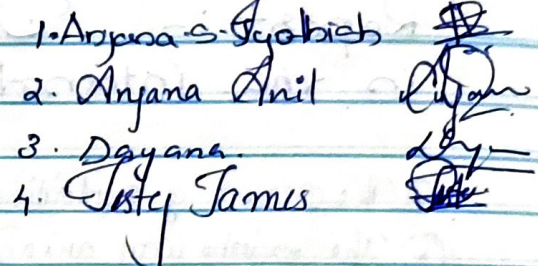 1. Anjana. S. Jyothish
2. Anjana Anil
3. Dayana.
4. Jisty James